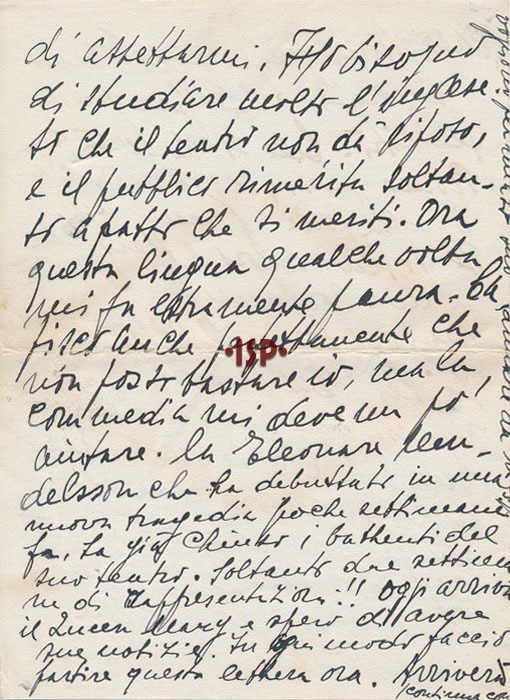 di assettarmi. Ho bisogno
di studiare molto l'inglese.
So che il teatro non dà riposo,
e il pubblico rimerita soltan-
to a patto che si meriti. Ora
questa lingua qualche volta
mi fa estramente paura. Ca
pisco anche perfettamente che
·ISP·
non posso bastare io, ma la
commedia mi deve un po'
aiutare. La Eleonora Men
delsson che ha debuttato in una
nuova tragedia poche settimane
fa, ha già chiuso i battenti del
suo teatro. Soltanto due settima
ne di rappresentazioni!! Oggi arriva
il Queen Mary e spero di avere
sue notizie. In ogni modo faccio
partire questa lettera ora. Arriverà
(continua